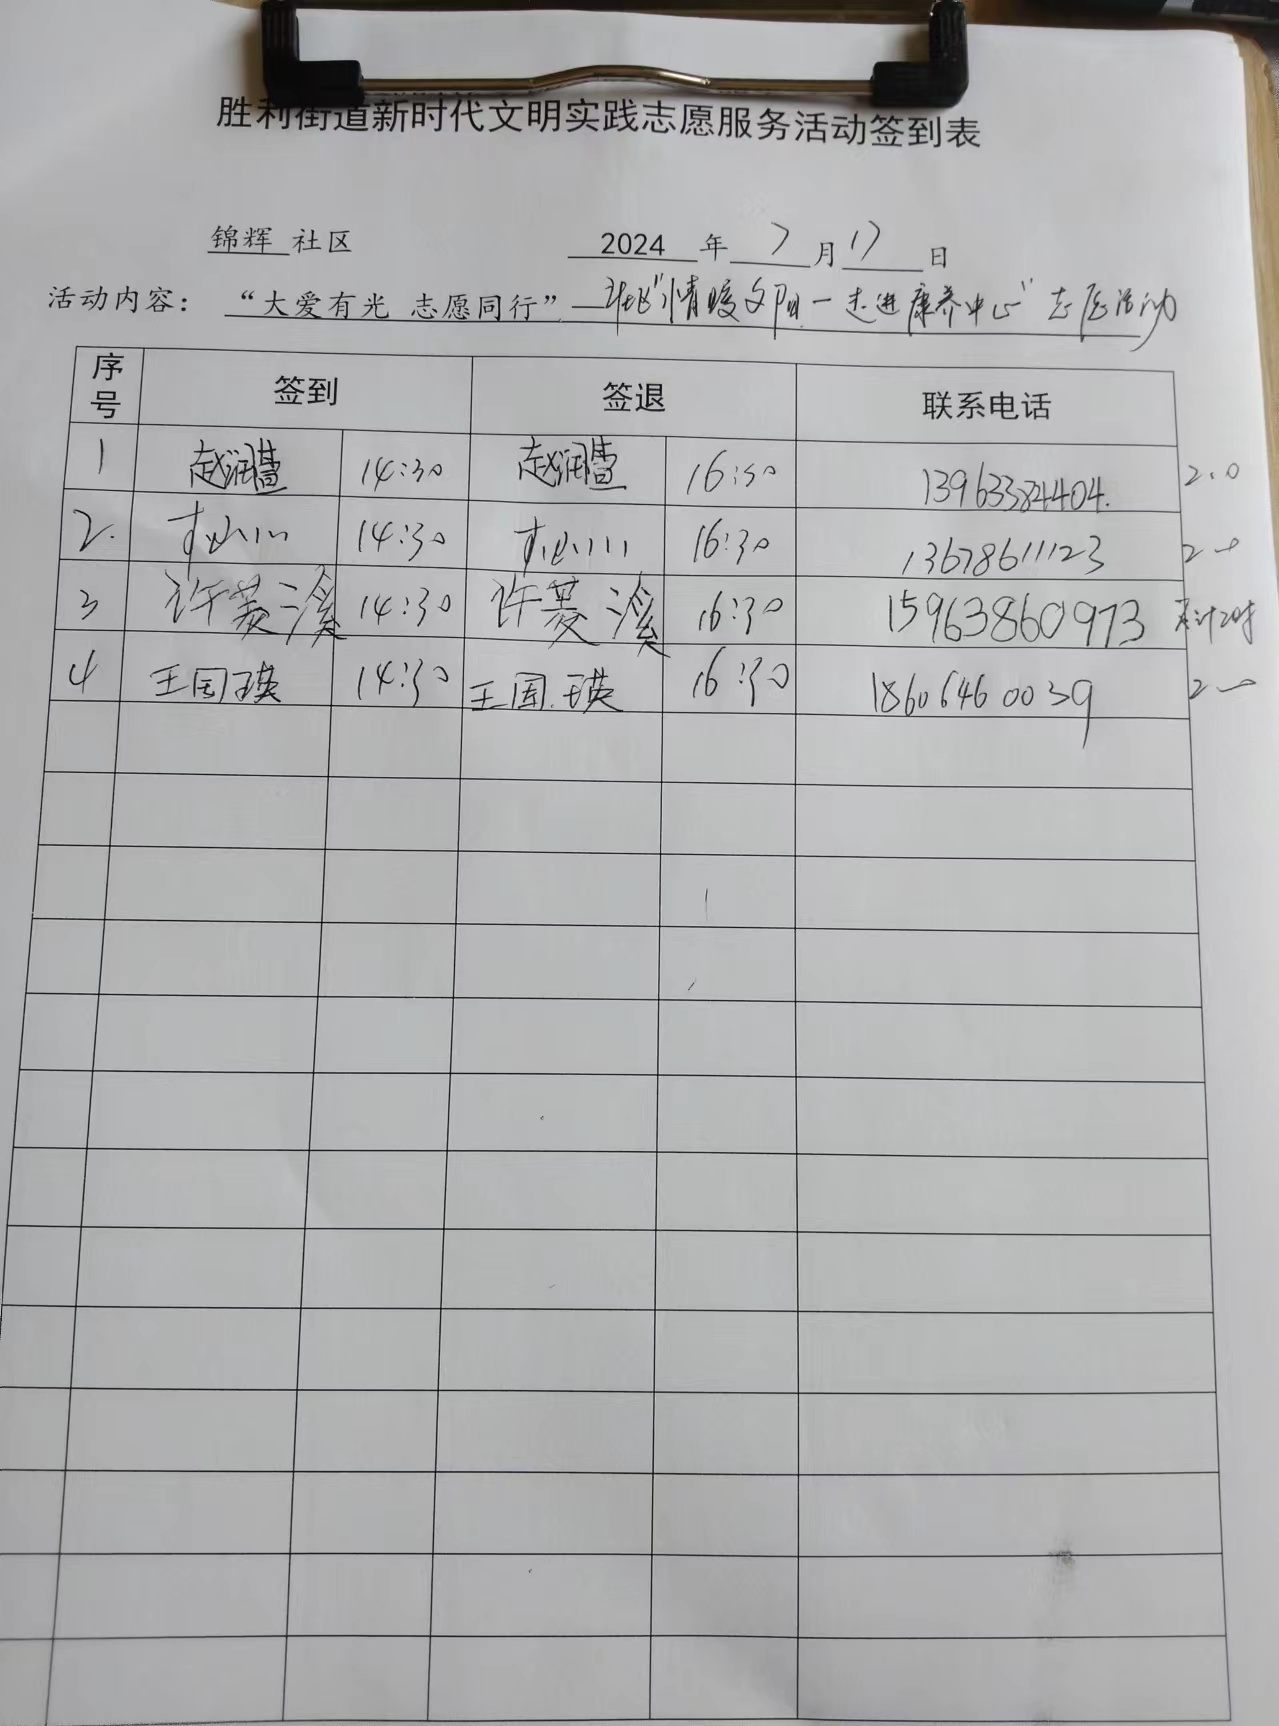 胜利街道新时代文明实践志愿服务活动签到表
锦辉 社区 2024 年 7 月 17 日
活动内容： “大爱有光 志愿同行” 社区“情暖夕阳—走进康养中心”志愿活动
序号 签到 签退 联系电话
1 赵润 14:30 赵润 16:30 13963384404. 2.0
2. 14:30 16:30 13678611123
3 许菱溪 14:30 许菱溪 16:30 15963860973
4 王国瑛 14:30 王国瑛 16:30 18606460039